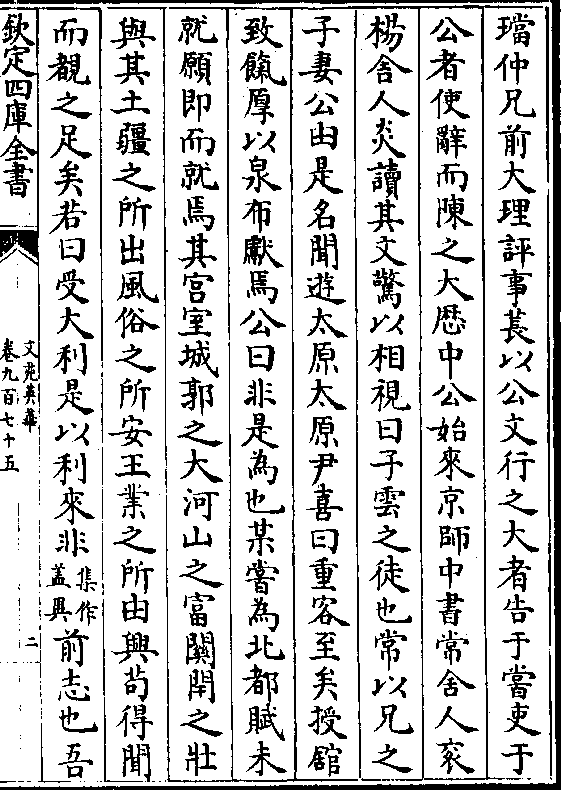 璫仲兄前大理評事萇以公文行之大者告于嘗吏于
公者使辭而陳之大厯中公始來京師中書常舍人衮
楊舍人炎讀其文驚以相視曰子雲之徒也常以兄之
子妻公由是名聞遊太原太原尹喜曰重客至矣授館
致餼厚以泉布獻焉公曰非是為也某嘗為北都賦未
就願即而就焉其宫室城郭之大河山之富關閈之壯
與其土疆之所出風俗之所安王業之所由興苟得聞
而覩之足矣若曰受大利是以利來非集作葢與前志也吾
欽定四庫全書
文苑英華
卷九百七十五
二